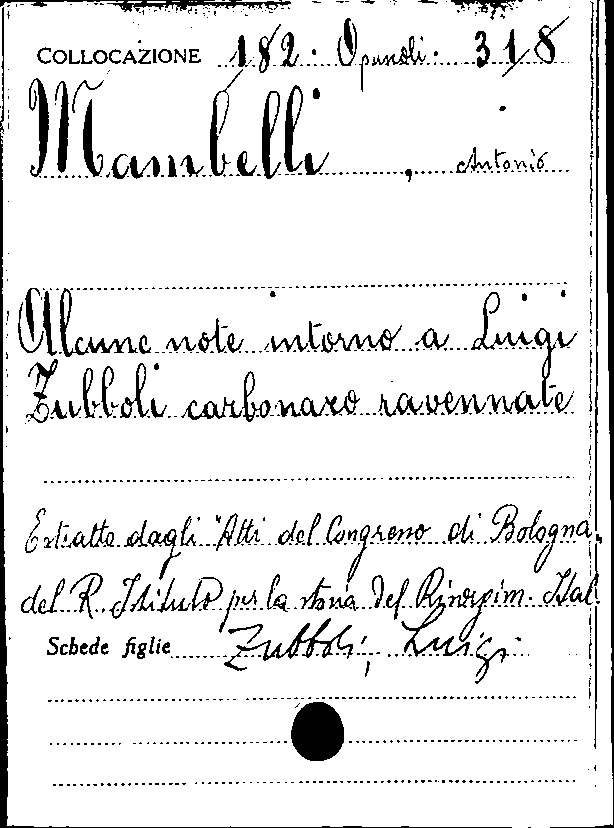 COLLOCAZIONE 182. Opuscoli. 318
Mambelli, Antonio
Alcune note intorno a Luigi
Zubboli carbonaro ravennate
Estratte dagli "Atti del Congresso di Bologna,
del R. Istituto per la storia del Risorgim. Ital.
Schede figlie Zubboli, Luigi